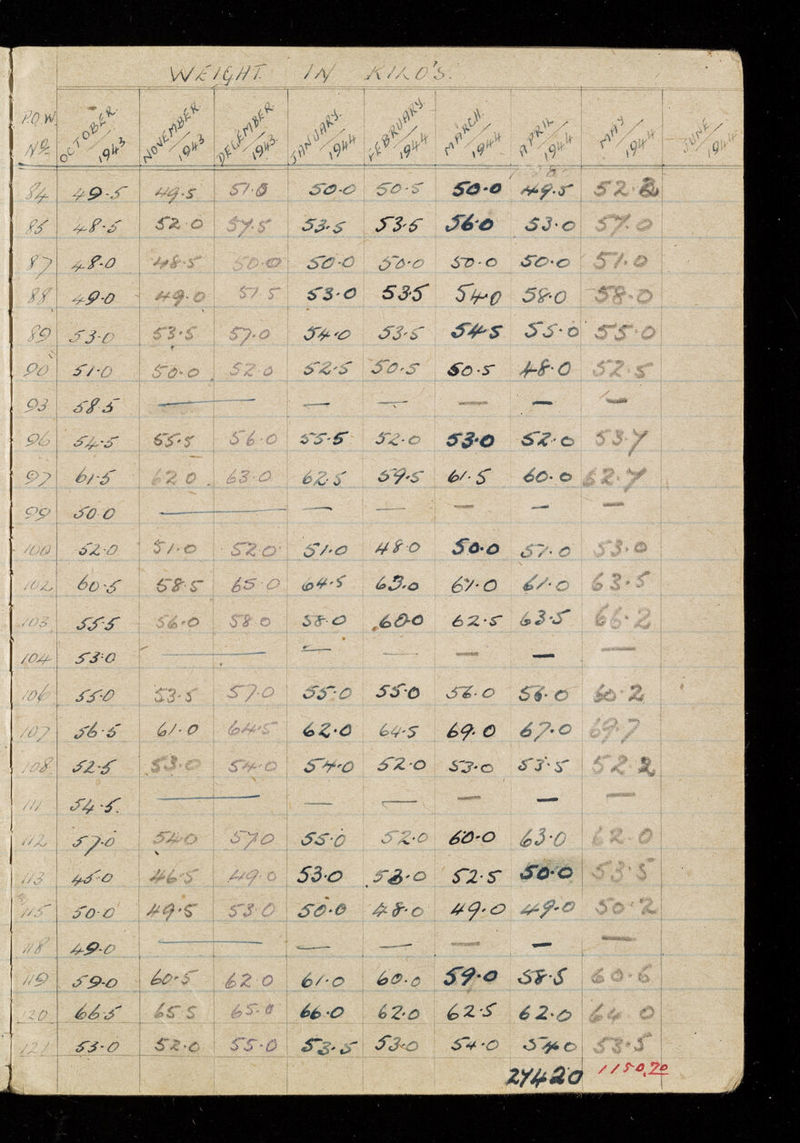 WEIGHT IN KILO'S.
P.O.W. No. OCTOBER 1943 NOVEMBER 1943 DECEMBER 1943 JANUARY 1944 FEBRUARY 1944 MARCH 1944 APRIL 1944 MAY 1944 JUNE 1944
84 49.5 49.5 51.0 50.0 50.5 50.0 49.5 52.2
85 48.5 52.0 57.5 53.5 53.5 56.0 53.0 57.0
87 48.0 48.5 50.0 50.0 50.0 50.0 50.0 51.0
88 49.0 49.0 51.5 53.0 53.5 54.0 58.0 58.0
89 53.0 53.5 57.0 54.0 53.5 54.5 55.0 55.0
90 51.0 50.0 52.0 52.5 50.5 50.5 48.0 52.5
93 58.5 — — — — — —
96 54.5 55.5 56.0 55.5 52.0 53.0 52.0 53.7
97 61.5 62.0 63.0 62.5 59.5 61.5 60.0 62.7
99 50.0 — — — — — —
100 52.0 51.0 52.0 51.0 48.0 50.0 51.0 53.0
102 60.5 58.5 65.0 64.5 63.0 61.0 61.0 63.5
103 55.5 56.0 58.0 58.0 60.0 62.5 63.5 66.2
104 53.0 — — — — — —
106 55.0 53.5 57.0 55.0 55.0 56.0 56.0 60.2
107 56.5 61.0 64.5 62.0 64.5 69.0 67.0 69.7
108 52.5 53.0 54.0 54.0 52.0 53.0 53.5 52.2
111 54.5. — — — — — —
112 57.0 54.0 57.0 55.0 52.0 60.0 63.0 62.0
113 45.0 46.5 49.0 53.0 53.0 52.5 50.0 53.5
115 50.0 49.5 53.0 50.0 48.0 49.0 49.0 50.2
118 49.0 — — — — — —
119 59.0 60.5 62.0 61.0 60.0 59.0 58.5 60.6
120 66.5 65.5 65.0 66.0 62.0 62.5 62.0 64.0
121 53.0 52.0 55.0 53.5 53.0 54.0 54.0 53.5
27420 1150.70